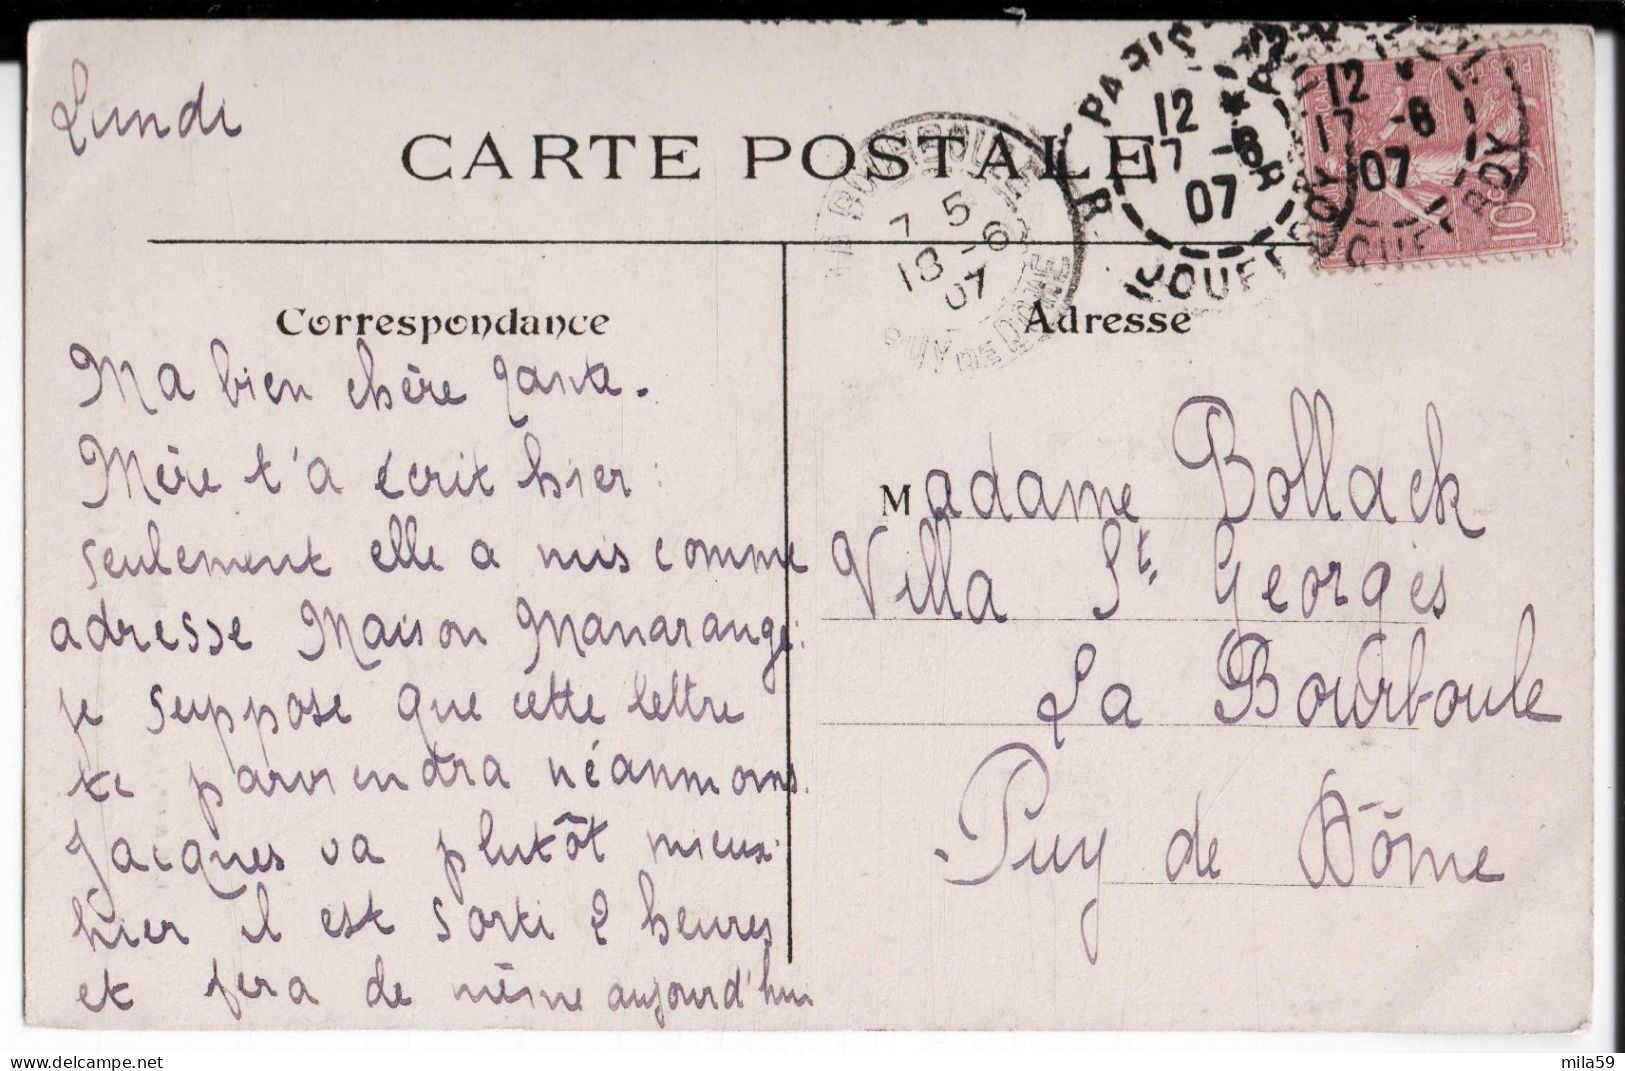 Lundi
CARTE POSTALE
Correspondance
Ma bien chère tante.
Mère t'a écrit hier :
seulement elle a mis comme
adresse Maison Manarange :
je suppose que cette lettre
te parviendra néanmoins.
Jacques va plutôt mieux :
hier il est sorti 2 heures
et fera de même aujourd'hui
Adresse
Madame Bollack
Villa St. Georges
La Bourboule
Puy de Dôme
LA BOURBOULE
7 5
18 -6
07
PUY DE DOME
PARIS
12
17 -6
07
R. JOUFFROY
12
17 -6
07
JOUFFROY
10
mila59